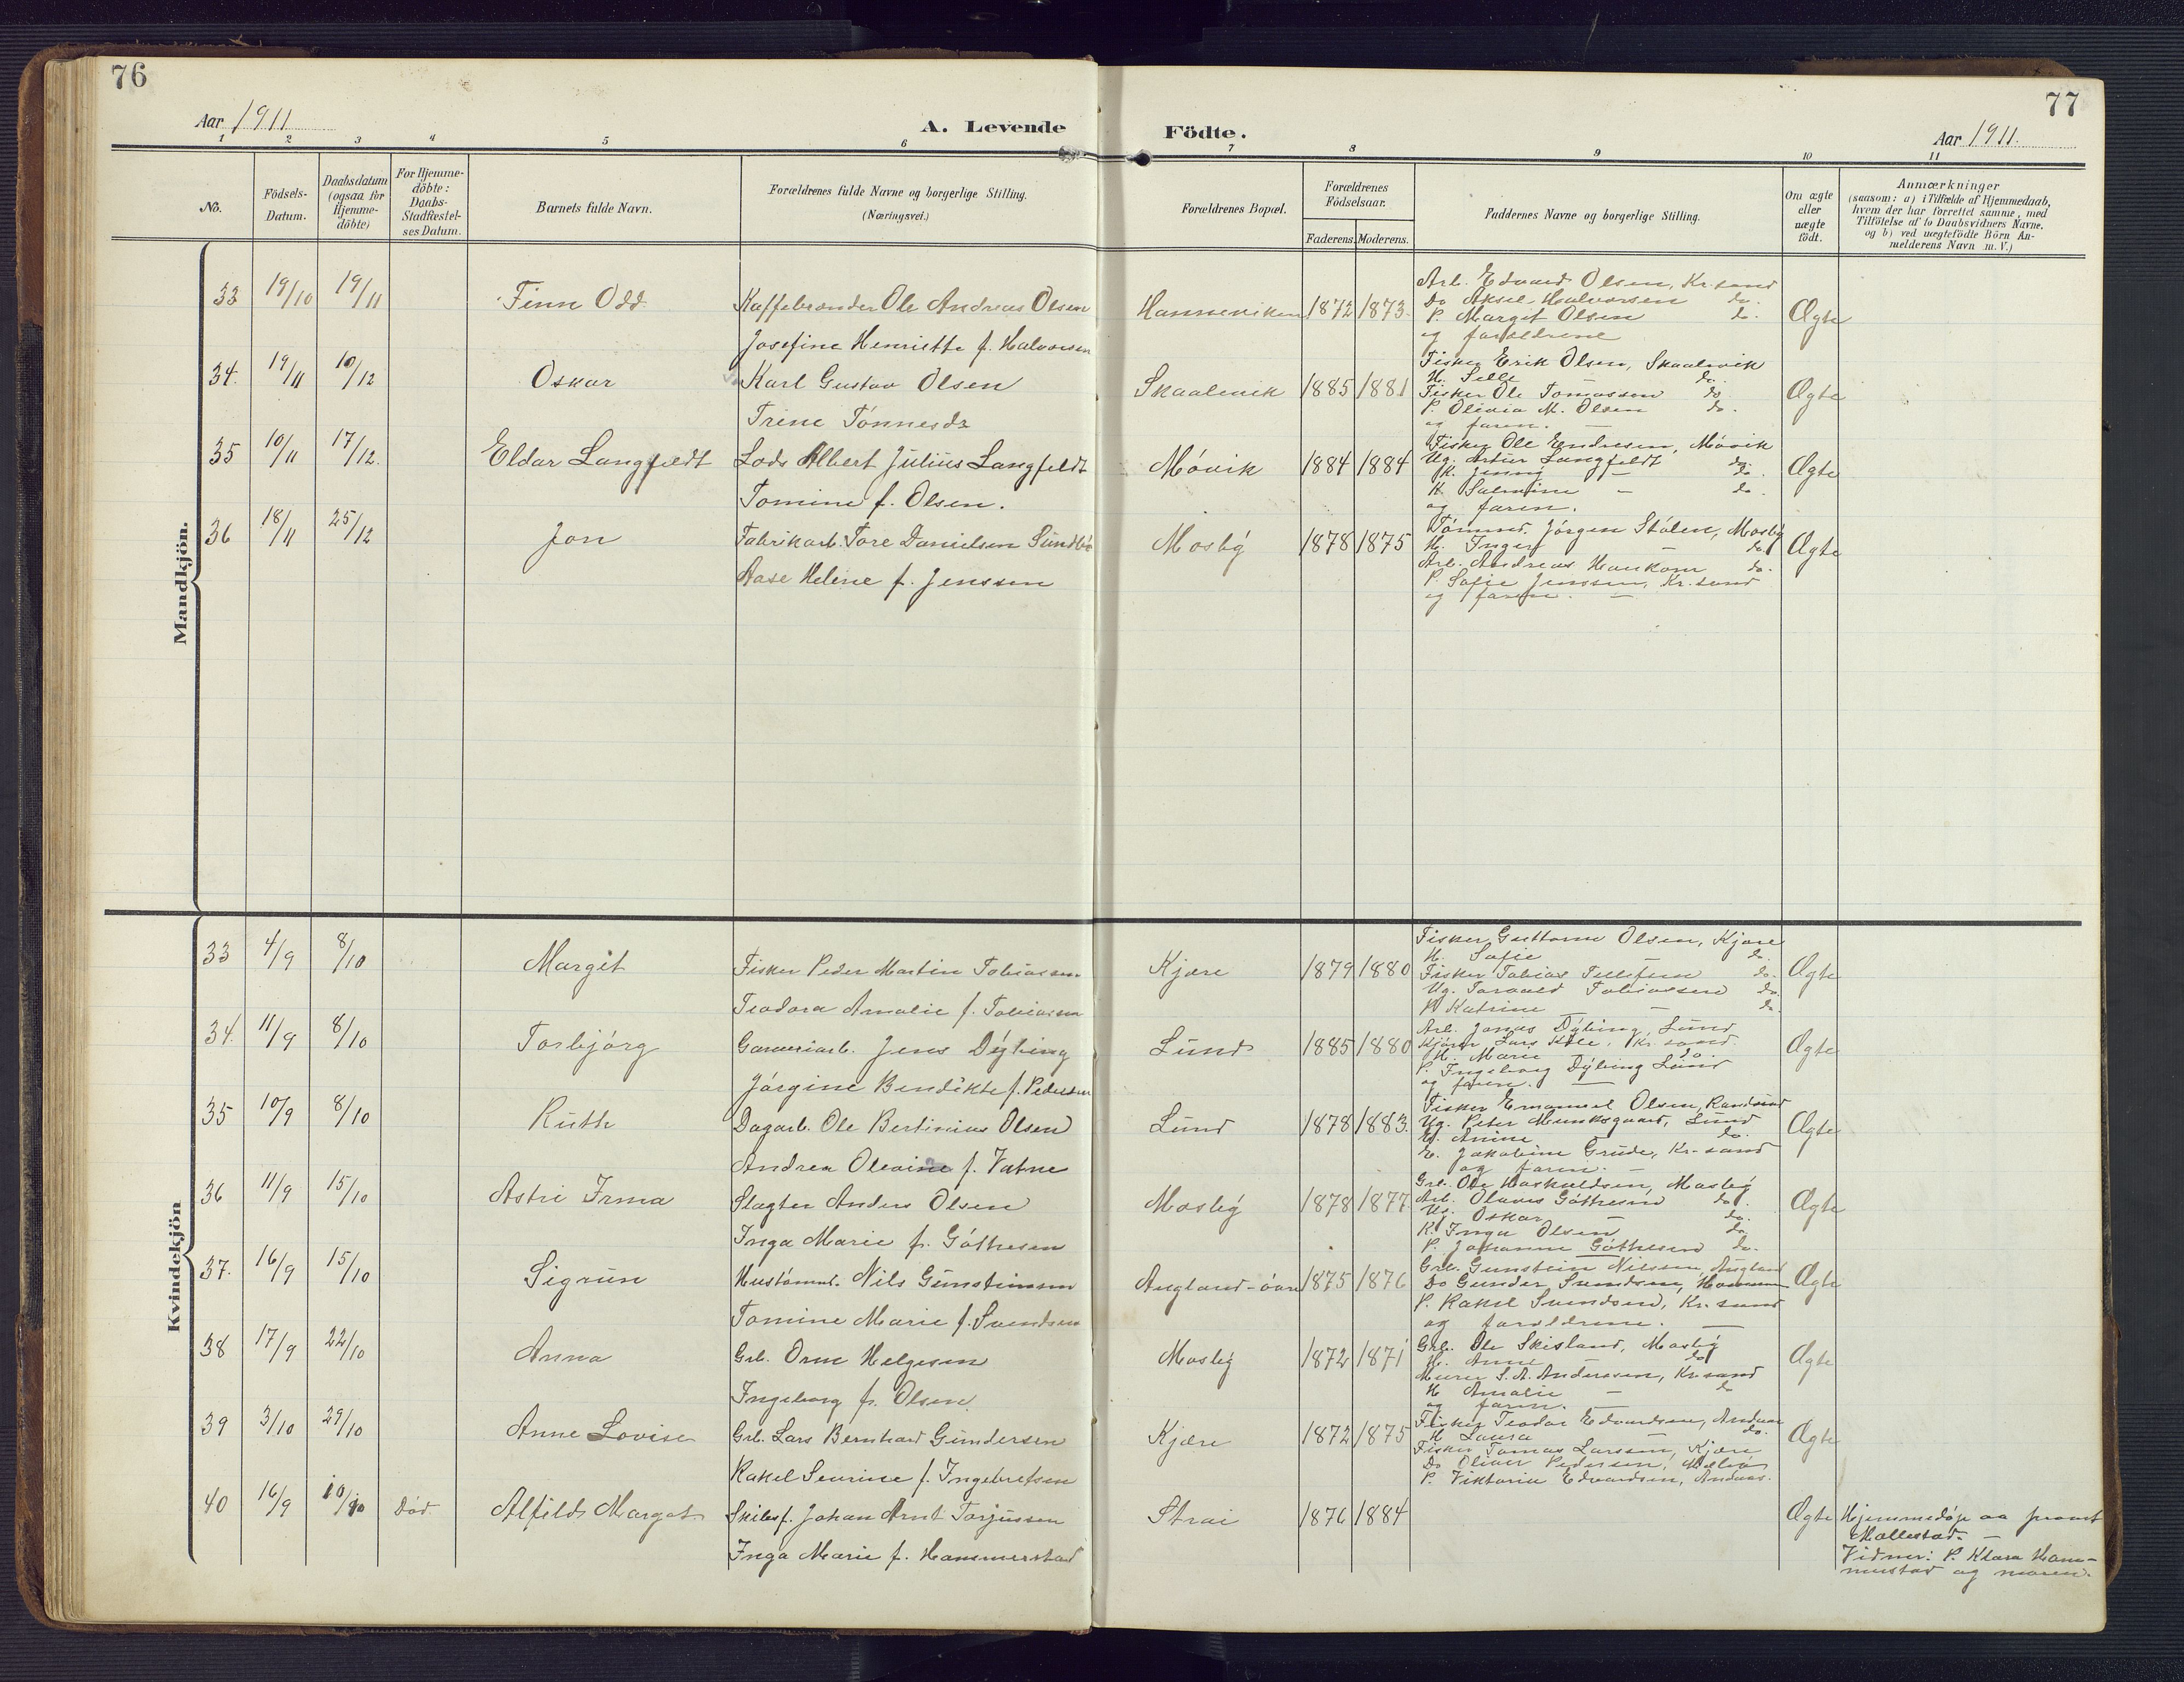 76
Aar 1911
A. Levende
1 2 3 4 5 6
No.
Födsels-
Datum.
Daabsdatum
(ogsaa for
Hjemme-
döbte)
For Hjemme-
döbte:
Daabs-
Stadfæstel-
ses Datum.
Barnets fulde Navn.
Forældrenes fulde Navne og borgerlige Stilling.
(Næringsvei.)
Mandkjön.
33 19/10 19/11 Finn Odd Kaffebrænder Ole Andreas Olsen
Josefine Henriette f. Halvorsen
34. 19/11 10/12 Oskar Karl Gustav Olsen
Trine Tönnesdr
35 10/11 17/12. Eldar Langfeldt Lods Albert Julius Langfeldt
Tomine f. Olsen.
36 18/11 25/12 Jon Fabrikarb. Tore Danielsen Sundbö
Aase Heline f. Jenssen
Kvindekjön
33 4/9 8/10 Margit Fisker Peder Martin Tobiassen
Teodora Amalie f. Tobiassen
34. 11/9 8/10 Torbjörg Garveriarb. Jens Dybing
Jörgine Bendikte f. Pedersen
35 10/9 8/10 Ruth Dagarb. Ole Bertinius Olsen
Andrea Olevine f. Vatne
36 11/9 15/10 Astri Irma Slagter Anders Olsen
Inga Marie f. Göthesen
37. 16/9 15/10 Sigrun Hustömmt. Nils Gunsteinsen
Tomine Marie f. Svendsen
38 17/9 22/10 Anna Grb. Orm Helgesen
Ingeborg f. Olsen.
39 3/10 29/10 Anne Lovise Grb. Lars Bernhard Gundersen
Rakel Severine f. Ingebretsen
40 16/9 10/10 Död. Alfild Margot Skibsf. Johan Arnt Torjussen
Inga Marie f. Hammerstad
77
Födte.
Aar 1911.
7 8 9 10 11
Forældrenes Bopæl.
Forældrenes
Födselsaar.
Faderens. Moderens.
Faddernes Navne og borgerlige Stilling.
Om ægte
eller
uægte
födt.
Anmærkninger
(saasom: a) i Tilfælde af Hjemmedaab,
hvem der har forrettet samme, med
Tilföielse af to Daabsvidners Navne.
og b) ved uægtefödte Börn An-
melderens Navn m. V.)
Arb. Edvard Olsen, Kr.sand
Do Aksel Halvorsen do.
Hanneviken 1872 1873. P. Margit Olsen do. Ægte
og forældrene
Fisker Erik Olsen, Skaalevik
H. Selle do.
Skaalevik 1885 1881 Fisker Ole Tomassen do Ægte
P. Olivia M. Olsen do.
og faren. —
Fisker Ole Endresen, Mövik
Ug. Artur Langfeldt do.
Mövik 1884 1884 K. Jenny — do. Ægte
K. Salmine — do.
og faren.
Tömmd. Jörgen Stölen, Mosby
H. Inger — do.
Mosby 1878 1875 Arb. Andreas Haukom do. Ægte
P. Sofie Jenssen, Kr.sand
og faren. —
Fisker Guttorm Olsen, Kjære
H. Sofie do.
Kjære 1879 1880 Fisker Tobias Tellefsen do. Ægte
Ug. Torvald Tobiassen do.
P. Katrine — — do.
Arb. Jonas Dybing, Lund
Lund 1885 1880 Kjörer Lars Kile, Kr.sand Ægte
H. Marie do.
P. Ingeborg Dybing Lund
og faren. —
Fisker Emanuel Olsen, Randesund
Lund 1878 1883. Ug. Peter Munksgaard, Lund Ægte
H. Anine do.
E. Jakobine Grude, Kr.sand
og faren. —
Grb. Ole Haskuldsen, Mosby
Mosby 1878 1877. Arb. Olaves Göthesen do. Ægte
Ug. Oskar — do.
K. Inga Olsen do
P. Johanne Göthesen do.
Grb. Gunstein Nilsen, Augland
Augland-övre 1875 1876 Do Gunder Svendsen, Hamre Ægte
P. Rakel Svendsen, Kr.sand
og forældrene. —
Grb. Ole Skisland, Mosby
Mosby 1872 1871 H. Anne do Ægte
Murer S. A. Anderssen, Kr.sand
H Amalie — do
og faren. —
Fisker Teodor Edvardsen, Andaas
Kjære 1872 1875 H Laura do. Ægte
Fisker Tomas Larssen, Kjære
Do Oliver Pedersen,
P. Viktoria Edvardsen, Andaas.
Strai 1876 1884 Ægte Hjemmedöpt av provst
Mollestad. —
Vidner: P. Klara Ham-
merstad og moren.